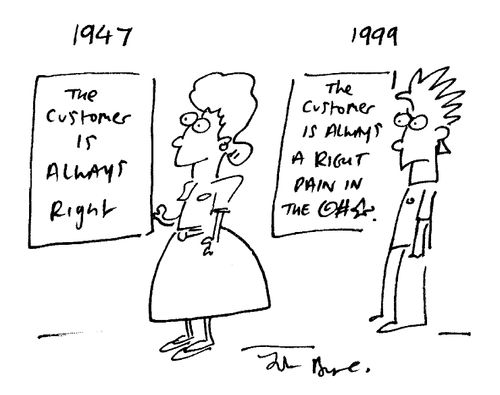 1947
The
Customer
Is
Always
Right
1999
The
Customer
Is Always
A Right
Pain in
The @#☆.